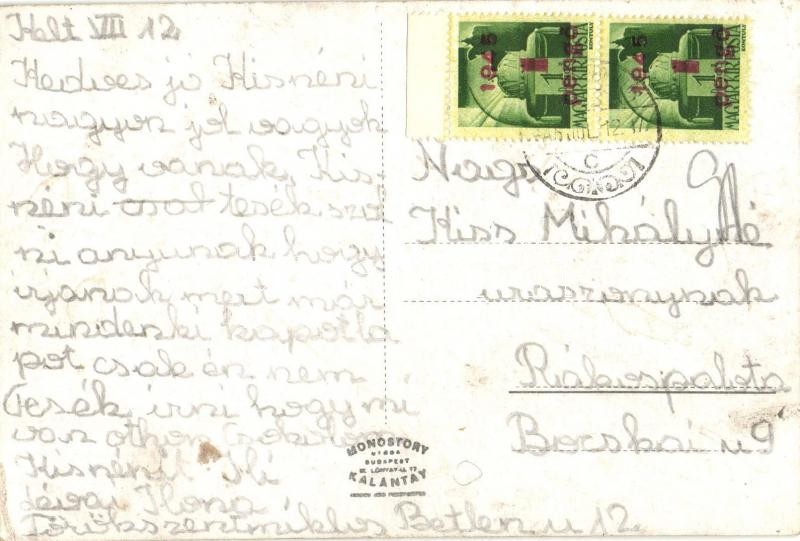 Kelt VIII 12
Kedves jó Kisnéni
nagyon jól vagyok
Hogy vanak, Kis-
néni csat tesék szol
ni anyunak hogy
irjanak mert már
mindenki kapott la
pot csak én nem
Tesék irni hogy mi
van othon Csokolom
Kisnénit Ili
Ilona
Törökszentmiklos Betlen u 12.
1945
1
pengő
MAGYAR KIR. POSTA
1945
1
pengő
MAGYAR KIR. POSTA
Nagy
Kiss Mihályné
uraszonynak
Rákospalota
Bocskai u 9
MONOSTORY
UTÓDA
BUDAPEST
IX. LÓNYAY-U. 17
KALANTAY